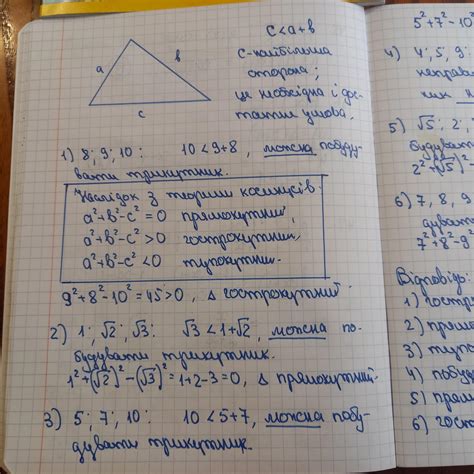 a
b
c
c < a+b
c-найбільша
сторона;
це необхідна і дос-
татня умова.
1) 8; 9; 10: 10 < 9+8, можна побуду-
вати трикутник.
Наслідок з теореми косинусів:
a²+b²-c² = 0 прямокутний,
a²+b²-c² > 0 гострокутний,
a²+b²-c² < 0 тупокутний.
9²+8²-10² = 45 > 0, Δ гострокутний.
2) 1; √2; √3: √3 < 1+√2, можна по-
будувати трикутник.
1²+(√2)²-(√3)² = 1+2-3=0, Δ прямокутний.
3) 5; 7; 10: 10 < 5+7, можна побу-
дувати трикутник.
5²+7²-10²
4) 4; 5; 9:
неправи
ник
5) √5; 2;
будувати
2²+(√5)²-
6) 7, 8, 9
дувати
7²+8²-9²
Відповідь:
1) гостр
2) прямо
3) тупо
4) побуд
5) прям
6) гост